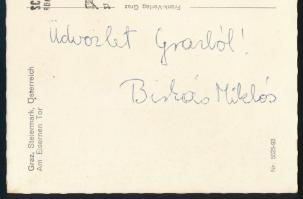 Frank-Verlag Graz
Üdvözlet Grazból!
Biskás Miklós
Graz, Steiermark, Österreich
Am Eisernen Tor
Nr. 5025-93